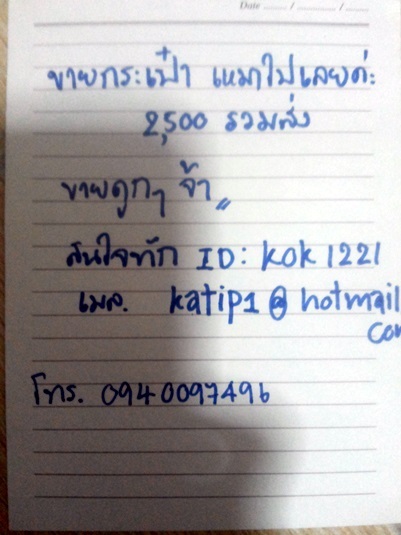 Date ___ / ___ / ___
ขายกระเป๋า เหมาไปเลยค่ะ
2,500 รวมส่ง
ขายถูกๆ จ้า
สนใจทัก ID: kok1221
เมล. katip1@hotmail
com
โทร. 0940097496